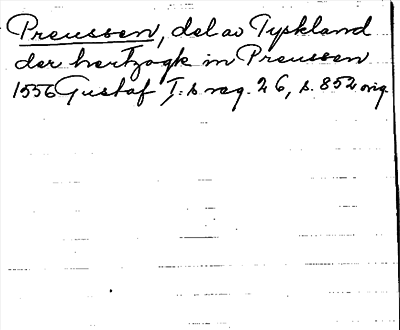 Preussen, del av Tyskland
der hertzogk in Preussen
1556 Gustaf I:s reg. 26, s. 852 orig.